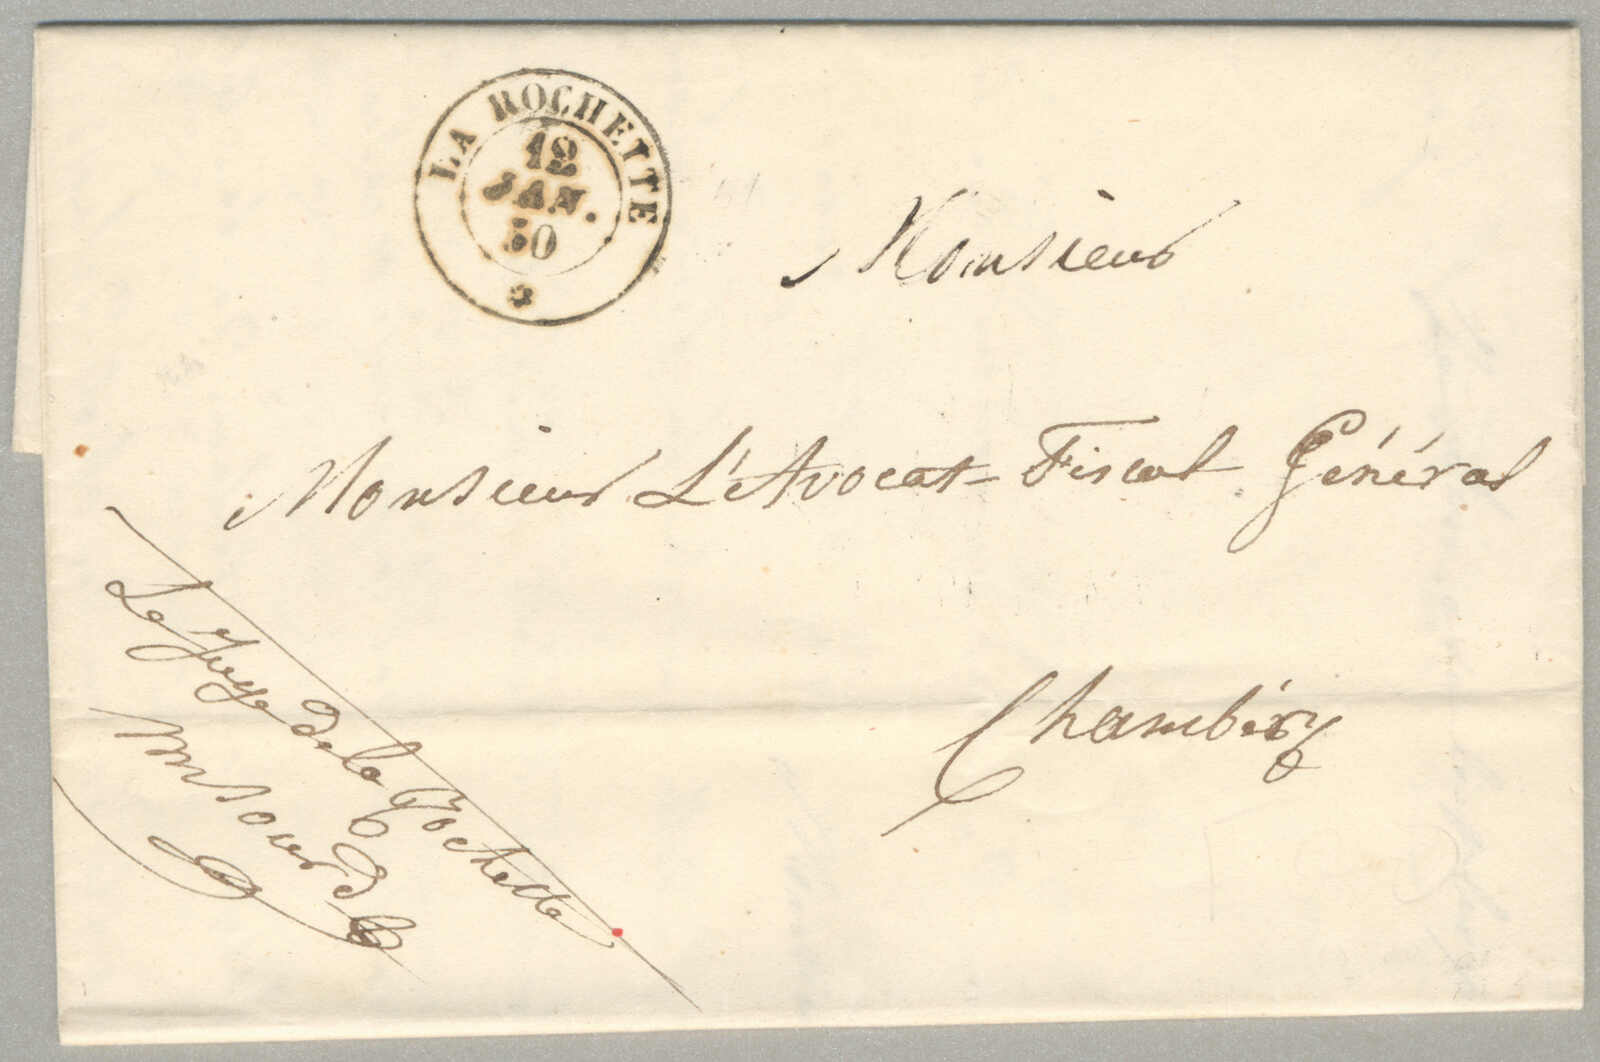 LA ROCHETTE
12
JAN.
50
Monsieur
Monsieur L'Avocat Fiscal Général
Chambéry
Le Juge de la Rochette